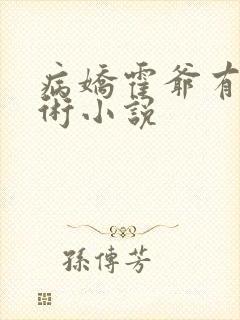 病嬌霍爺有
術小說
孫傳芳